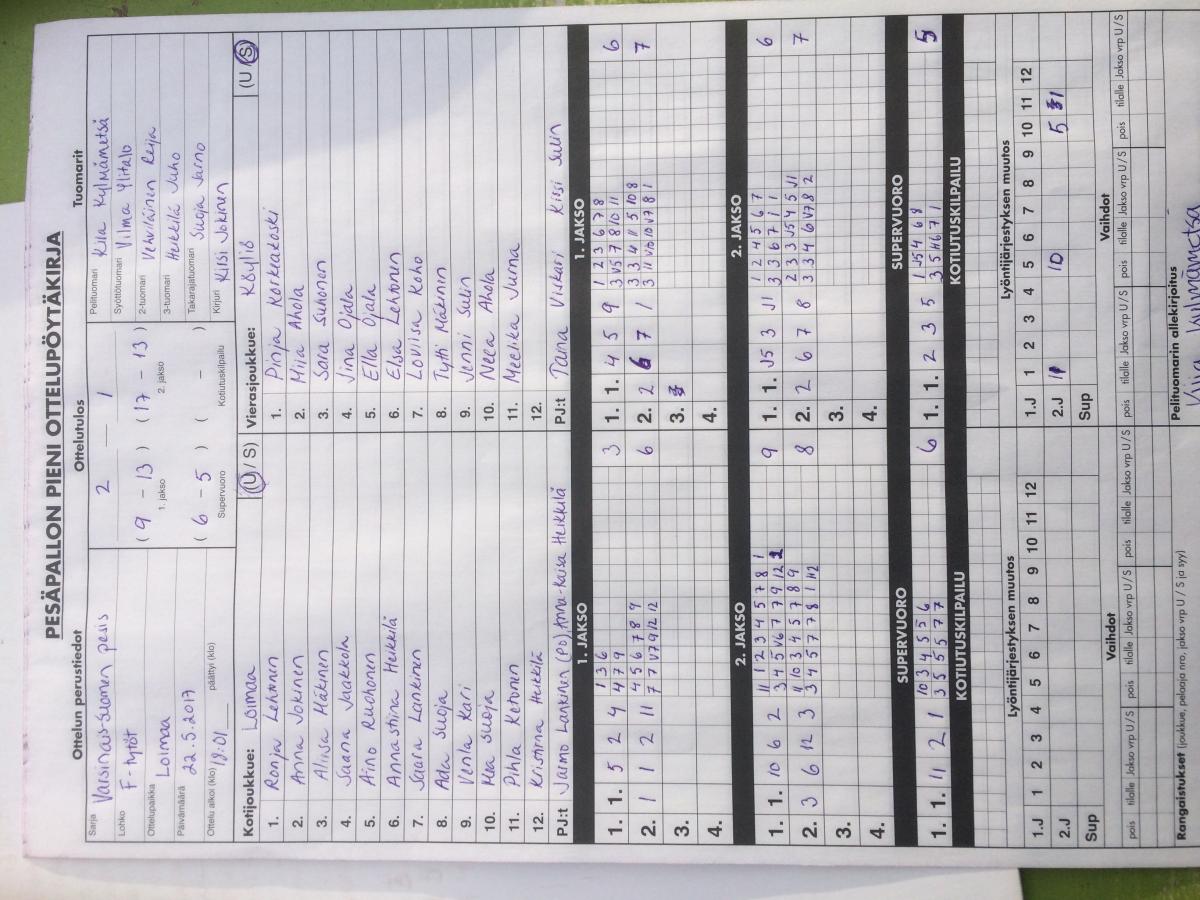 PESÄPALLON PIENI OTTELUPÖYTÄKIRJA
Ottelun perustiedot
Sarja Varsinais-Suomen pesis
Lohko F-tytöt
Ottelupaikka Loimaa
Päivämäärä 22.5.2017
Ottelu alkoi (klo) 18:01 päättyi (klo)
Ottelutulos
2 1
( 9 - 13 ) ( 17 - 13 )
1. jakso 2. jakso
( 6 - 5 ) ( - )
Supervuoro Kotiutuskilpailu
Tuomarit
Pelituomari Kiia Kylmämetsä
Syöttötuomari Vilma Ylitalo
2-tuomari Vehviläinen Reija
3-tuomari Heikkilä Juho
Takarajatuomari Suoja Jarno
Kirjuri Kissi Jokinen
Kotijoukkue: Loimaa (U / S)
1. Ronja Lehtinen
2. Anna Jokinen
3. Aliisa Häkinen
4. Saana Jaakkola
5. Aino Ruohonen
6. Annastiina Heikkilä
7. Saara Lankinen
8. Ada Suoja
9. Venla Kari
10. Kea Suoja
11. Pihla Ketonen
12. Kristiina Heikkilä
PJ:t Jarmo Lankinen (PJ), Anna-Kaisa Heikkilä
Vierasjoukkue: Köyliö (U / S)
1. Pinja Korkeakoski
2. Miia Ahola
3. Sara Suhonen
4. Jina Ojala
5. Ella Ojala
6. Elsa Lehtonen
7. Loviisa Koho
8. Tytti Mäkinen
9. Jenni Sulin
10. Neea Ahola
11. Meelika Jurna
12.
PJ:t Taina Viskari Kissi Sulin
1. JAKSO
1. 1. 5 2 4 3
1 3 6
4 7 9
2. 1 1 2 11 6
4 5 6 7 8 9
7 7 v7 9 12 12
3.
4.
1. JAKSO
1. 1. 4 5 9 6
1 2 3 6 7 8
3 v5 7 8 10 11
2. 2 6 7 1 7
3 3 4 11 5 10 8
3 11 v10 10 v7 8 1
3.
4.
2. JAKSO
1. 1. 10 6 2 9
11 1 2 3 4 5 7 8 1
3 4 5 v6 7 7 9 12 2
2. 3 6 12 3 8
11 10 3 4 5 7 8 9
3 4 5 7 7 8 1 12
3.
4.
2. JAKSO
1. 1. v5 3 11 6
1 2 4 5 6 7
3 3 6 7 1 1
2. 2 6 7 8 7
2 3 3 v5 4 5 11
3 3 4 6 v7 8 2
3.
4.
SUPERVUORO
1. 1. 11 2 1 6
10 3 4 5 5 6
3 5 5 5 7 7
SUPERVUORO
1. 1. 2 3 5 5
1 v5 4 6 8
3 5 11 6 7 1
KOTIUTUSKILPAILU
KOTIUTUSKILPAILU
Lyöntijärjestyksen muutos
1 2 3 4 5 6 7 8 9 10 11 12
1.J
2.J
Sup
Lyöntijärjestyksen muutos
1 2 3 4 5 6 7 8 9 10 11 12
1.J
2.J 11 10 5 1
Sup
Vaihdot
pois tilalle Jakso vrp U / S pois tilalle Jakso vrp U / S pois tilalle Jakso vrp U / S
Vaihdot
pois tilalle Jakso vrp U / S pois tilalle Jakso vrp U / S pois tilalle Jakso vrp U / S
Rangaistukset (joukkue, pelaaja nro, jakso vrp U / S ja syy)
Pelituomarin allekirjoitus
Kiia Kylmämetsä